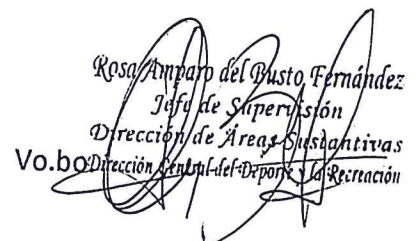 Rosa Amparo del Busto Fernández
Jefe de Supervisión
Dirección de Áreas Sustantivas
Vo.bo Dirección General del Deporte y la Recreación